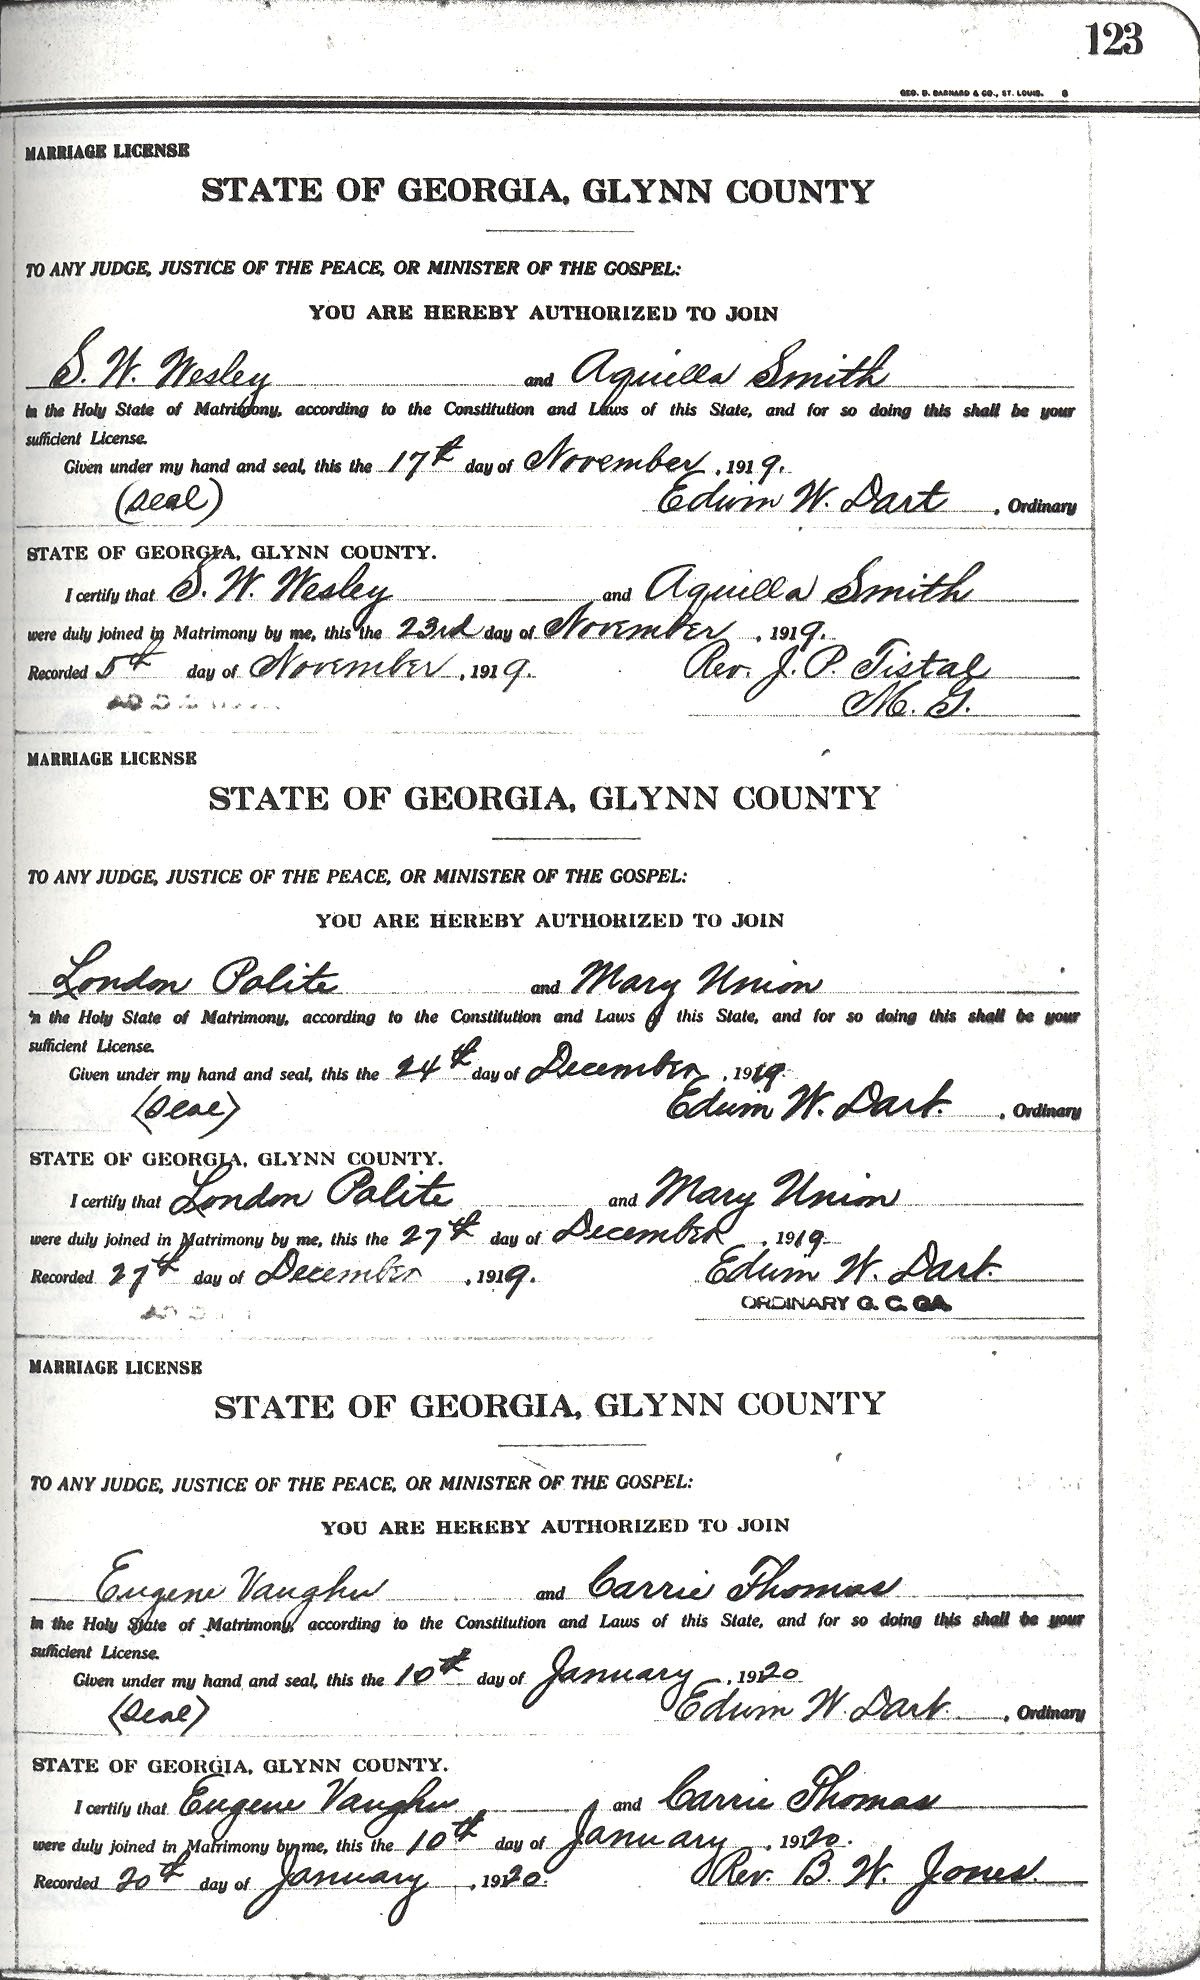 123
GEO. D. BARNARD & CO., ST. LOUIS. 8
MARRIAGE LICENSE
STATE OF GEORGIA, GLYNN COUNTY
TO ANY JUDGE, JUSTICE OF THE PEACE, OR MINISTER OF THE GOSPEL:
YOU ARE HEREBY AUTHORIZED TO JOIN
S. W. Wesley and Aquilla Smith
in the Holy State of Matrimony, according to the Constitution and Laws of this State, and for so doing this shall be your
sufficient License.
Given under my hand and seal, this the 17th day of November, 1919.
(Seal) Edwin W. Dart, Ordinary
STATE OF GEORGIA, GLYNN COUNTY.
I certify that S. W. Wesley and Aquilla Smith
were duly joined in Matrimony by me, this the 23rd day of November, 1919.
Recorded 5th day of November, 1919. Rev. J. P. Tistal
M. G.
MARRIAGE LICENSE
STATE OF GEORGIA, GLYNN COUNTY
TO ANY JUDGE, JUSTICE OF THE PEACE, OR MINISTER OF THE GOSPEL:
YOU ARE HEREBY AUTHORIZED TO JOIN
London Polite and Mary Union
in the Holy State of Matrimony, according to the Constitution and Laws of this State, and for so doing this shall be your
sufficient License.
Given under my hand and seal, this the 24th day of December, 1919
(Seal) Edwin W. Dart., Ordinary
STATE OF GEORGIA, GLYNN COUNTY.
I certify that London Polite and Mary Union
were duly joined in Matrimony by me, this the 27th day of December, 1919
Recorded 27th day of December, 1919. Edwin W. Dart.
ORDINARY G. C. GA.
MARRIAGE LICENSE
STATE OF GEORGIA, GLYNN COUNTY
TO ANY JUDGE, JUSTICE OF THE PEACE, OR MINISTER OF THE GOSPEL:
YOU ARE HEREBY AUTHORIZED TO JOIN
Eugene Vaughn and Carrie Thomas
in the Holy State of Matrimony, according to the Constitution and Laws of this State, and for so doing this shall be your
sufficient License.
Given under my hand and seal, this the 10th day of January, 1920
(Seal) Edwin W. Dart., Ordinary
STATE OF GEORGIA, GLYNN COUNTY.
I certify that Eugene Vaughn and Carrie Thomas
were duly joined in Matrimony by me, this the 10th day of January, 1920.
Recorded 20th day of January, 1920. Rev. B. W. Jones.